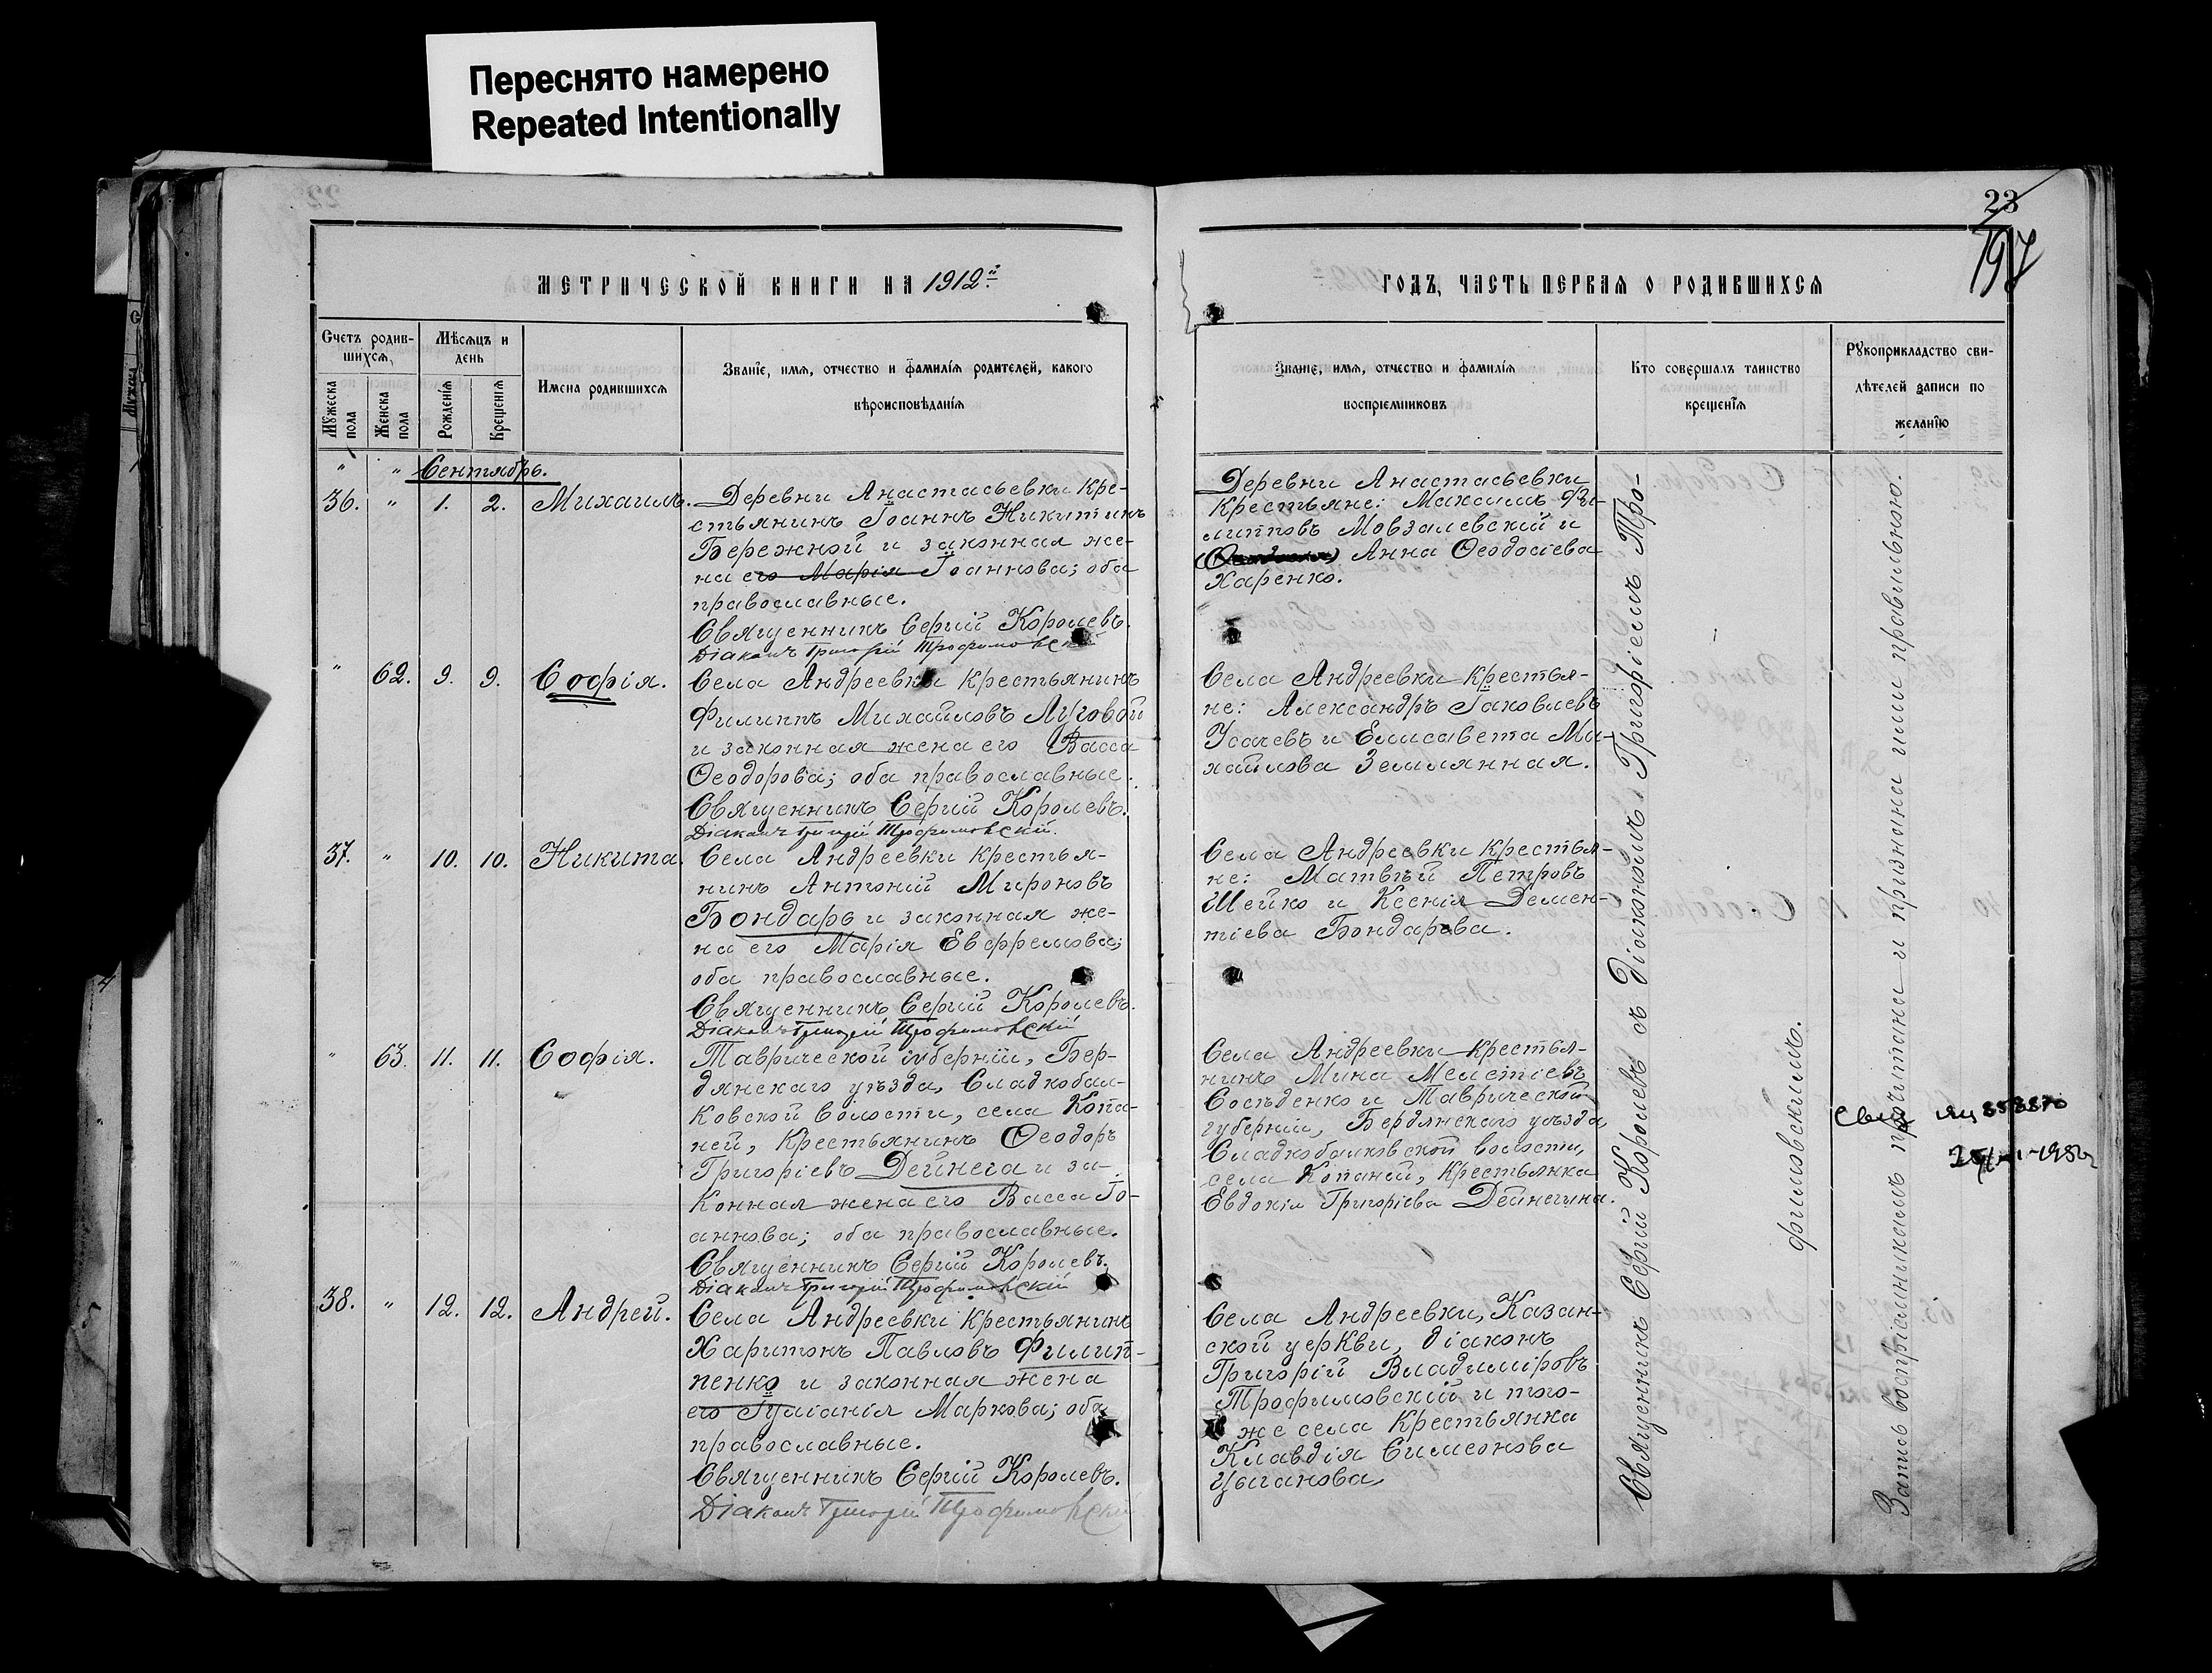 Переснято намерено
Repeated Intentionally
23
197
МЕТРИЧЕСКОЙ КНИГИ НА 1912й
ГОДЪ, ЧАСТЬ ПЕРВАЯ О РОДИВШИХСЯ
Счетъ родив-
шихся
Мужеска пола
Женска пола
Мѣсяцъ и
день
Рожденія
Крещенія
Имена родившихся
Званіе, имя, отчество и фамилія родителей, какого
вѣроисповѣданія
Званіе, имя, отчество и фамилія
воспріемниковъ
Кто совершалъ таинство
крещенія
Рукоприкладство сви-
дѣтелей записи по
желанію
" " Сентябрь.
36. " 1. 2. Михаилъ.
Деревни Анастасьевки Кре-
стьянинъ Іоаннъ Никитинъ
Бережной и законная же-
на его Марія Іоаннова; оба
православные.
Священникъ Сергій Королевъ.
Діаконъ Григорій Трофимовскій
Деревни Анастасьевки
Крестьяне: Максимъ Фи-
липповъ Мовзалевскій и
Анна Ѳеодосіева
Харенко.
" 62. 9. 9. Софія.
Села Андреевки Крестьянинъ
Филиппъ Михайловъ Луговой
и законная жена его Васса
Ѳеодорова; оба православные.
Священникъ Сергій Королевъ.
Діаконъ Григорій Трофимовскій.
Села Андреевки Крестья-
не: Александръ Іаковлевъ
Усачевъ и Елисавета Ми-
хайлова Землянная.
37. " 10. 10. Никита.
Села Андреевки Крестья-
нинъ Антоній Мироновъ
Бондарь и законная же-
на его Марія Евфремова;
оба православные.
Священникъ Сергій Королевъ.
Діаконъ Григорій Трофимовскій
Села Андреевки Крестья-
не: Матвѣй Петровъ
Шейко и Ксенія Демен-
тіева Бондарева.
" 63. 11. 11. Софія.
Таврической губерніи, Бер-
дянскаго уѣзда, Сладкобал-
ковской волости, села Копа-
ней, Крестьянинъ Ѳеодоръ
Григоріевъ Дейнега и за-
конная жена его Васса Іо-
аннова; оба православные.
Священникъ Сергій Королевъ.
Діаконъ Григорій Трофимовскій
Села Андреевки Крестья-
нинъ Мина Мелетіевъ
Сосѣденко и Таврической
губерніи, Бердянскаго уѣзда,
Сладкобалковской волости,
села Копаней, Крестьянка
Евдокія Григоріева Дейнегина.
38. " 12. 12. Андрей.
Села Андреевки Крестьянинъ
Харитонъ Павловъ Филип-
пенко и законная жена
его Іуліанія Маркова; оба
православные.
Священникъ Сергій Королевъ.
Діаконъ Григорій Трофимовскій
Села Андреевки, Казан-
ской церкви, діаконъ
Григорій Владиміровъ
Трофимовскій и того-
же села Крестьянка
Клавдія Симеонова
Цыганова
Священникъ Сергій Королевъ съ Діакономъ Григоріемъ Тро-
фимовскимъ.
Запись воспріемникамъ прочитана и признана ими правильною.